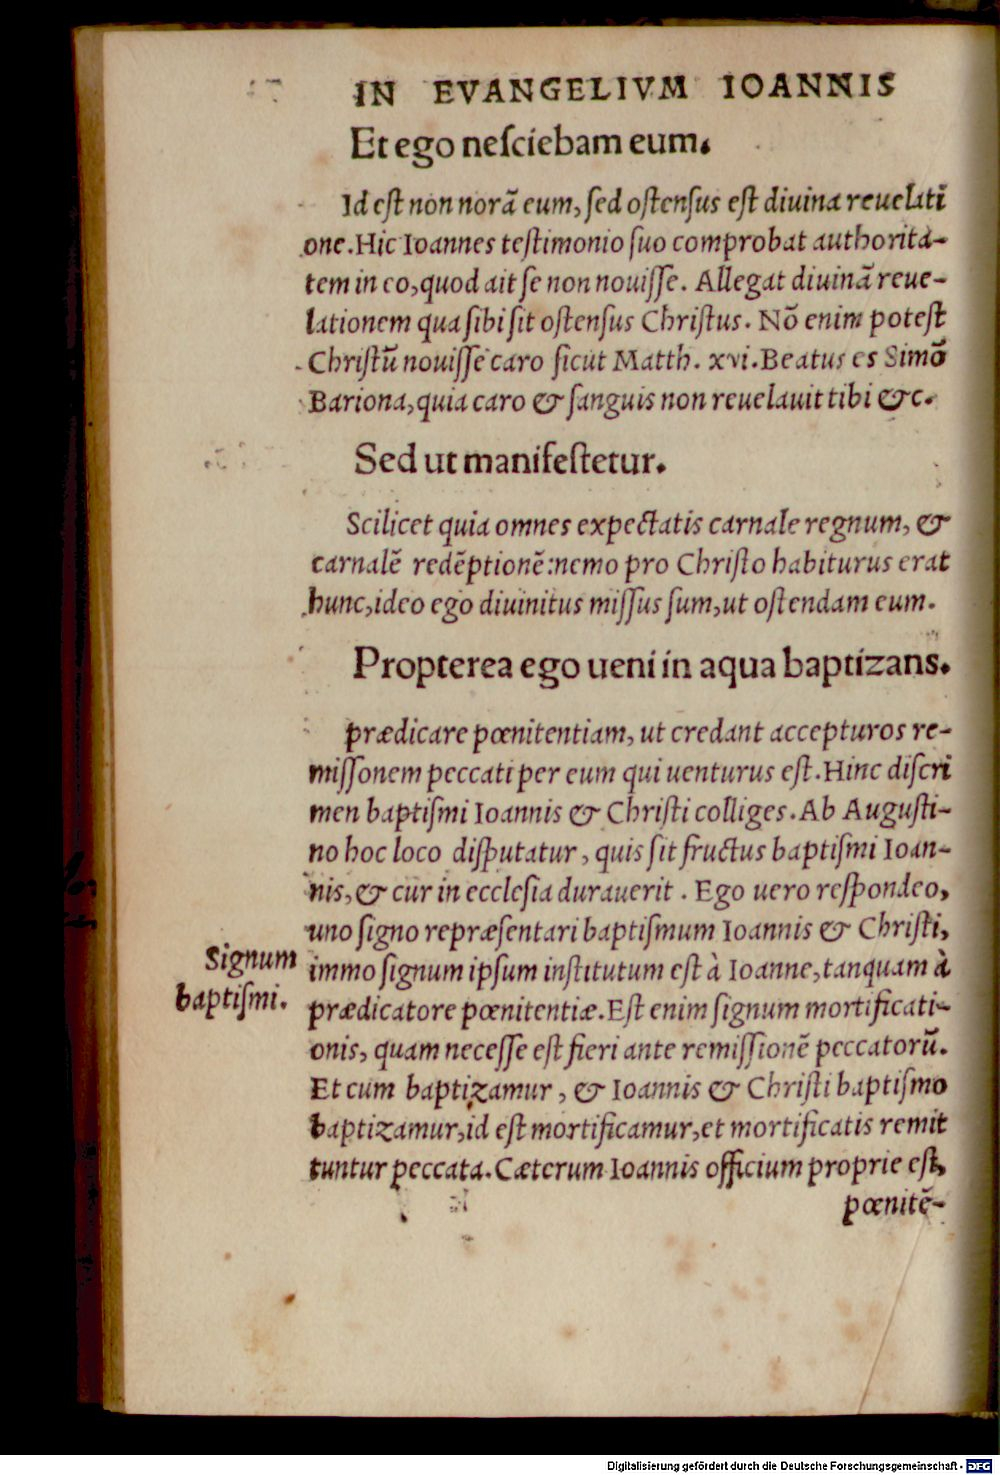 IN EVANGELIVM IOANNIS
Et ego neſciebam eum.
Id eſt non norã eum, ſed oſtenſus eſt diuina reuelati
one. Hic Ioannes teſtimonio ſuo comprobat authorita-
tem in eo, quod ait ſe non nouiſſe. Allegat diuinã reue-
lationem qua ſibi ſit oſtenſus Chriſtus. Nõ enim poteſt
Chriſtũ nouiſſe caro ſicut Matth. xvi. Beatus es Simõ
Bariona, quia caro & ſanguis non reuelauit tibi &c.
Sed ut manifeſtetur.
Scilicet quia omnes expectatis carnale regnum, &
carnalẽ redẽptionẽ: nemo pro Chriſto habiturus erat
hunc, ideo ego diuinitus miſſus ſum, ut oſtendam eum.
Propterea ego ueni in aqua baptizans.
prædicare pœnitentiam, ut credant accepturos re-
miſſonem peccati per eum qui uenturus eſt. Hinc diſcri
men baptiſmi Ioannis & Chriſti colliges. Ab Auguſti-
no hoc loco diſputatur, quis ſit fructus baptiſmi Ioan-
nis, & cur in eccleſia durauerit. Ego uero reſpondeo,
uno ſigno repræſentari baptiſmum Ioannis & Chriſti,
Signum
baptiſmi.
immo ſignum ipſum inſtitutum eſt à Ioanne, tanquam à
prædicatore pœnitentiæ. Eſt enim ſignum mortificati-
onis, quam neceſſe eſt fieri ante remiſſionẽ peccatorũ.
Et cum baptizamur, & Ioannis & Chriſti baptiſmo
baptizamur, id eſt mortificamur, et mortificatis remit
tuntur peccata. Cæterum Ioannis officium proprie eſt,
pœnitẽ-
Digitalisierung gefördert durch die Deutsche Forschungsgemeinschaft - DFG